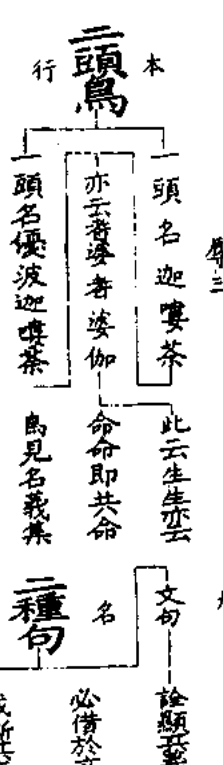 二頭鳥
本行
一頭名迦嘍茶
亦云耆婆耆婆伽
一頭名優波迦嘍茶
此云生生亦云
命命即共命
鳥見名義集
二種句
名
文句
詮顯
必借於